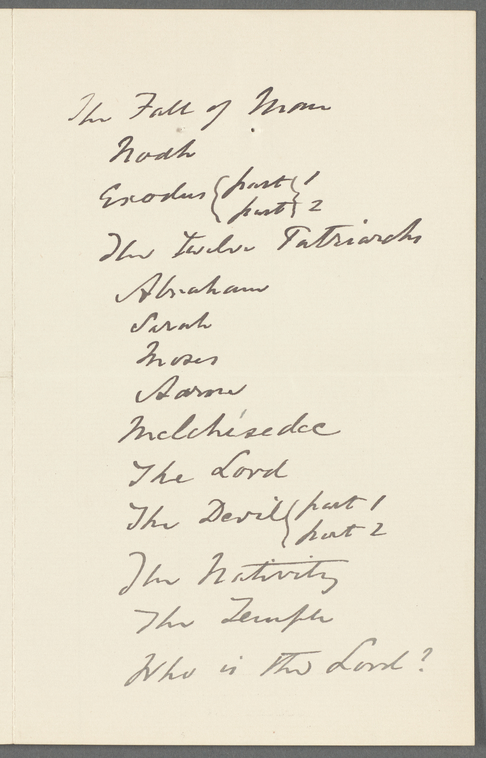 The Fall of Man
Noah
Exodus { part 1
{ part 2
The Twelve Patriarchs
Abraham
Sarah
Moses
Aaron
Melchisedec
The Lord
The Devil { part 1
{ part 2
The Nativity
The Temple
Who is the Lord?